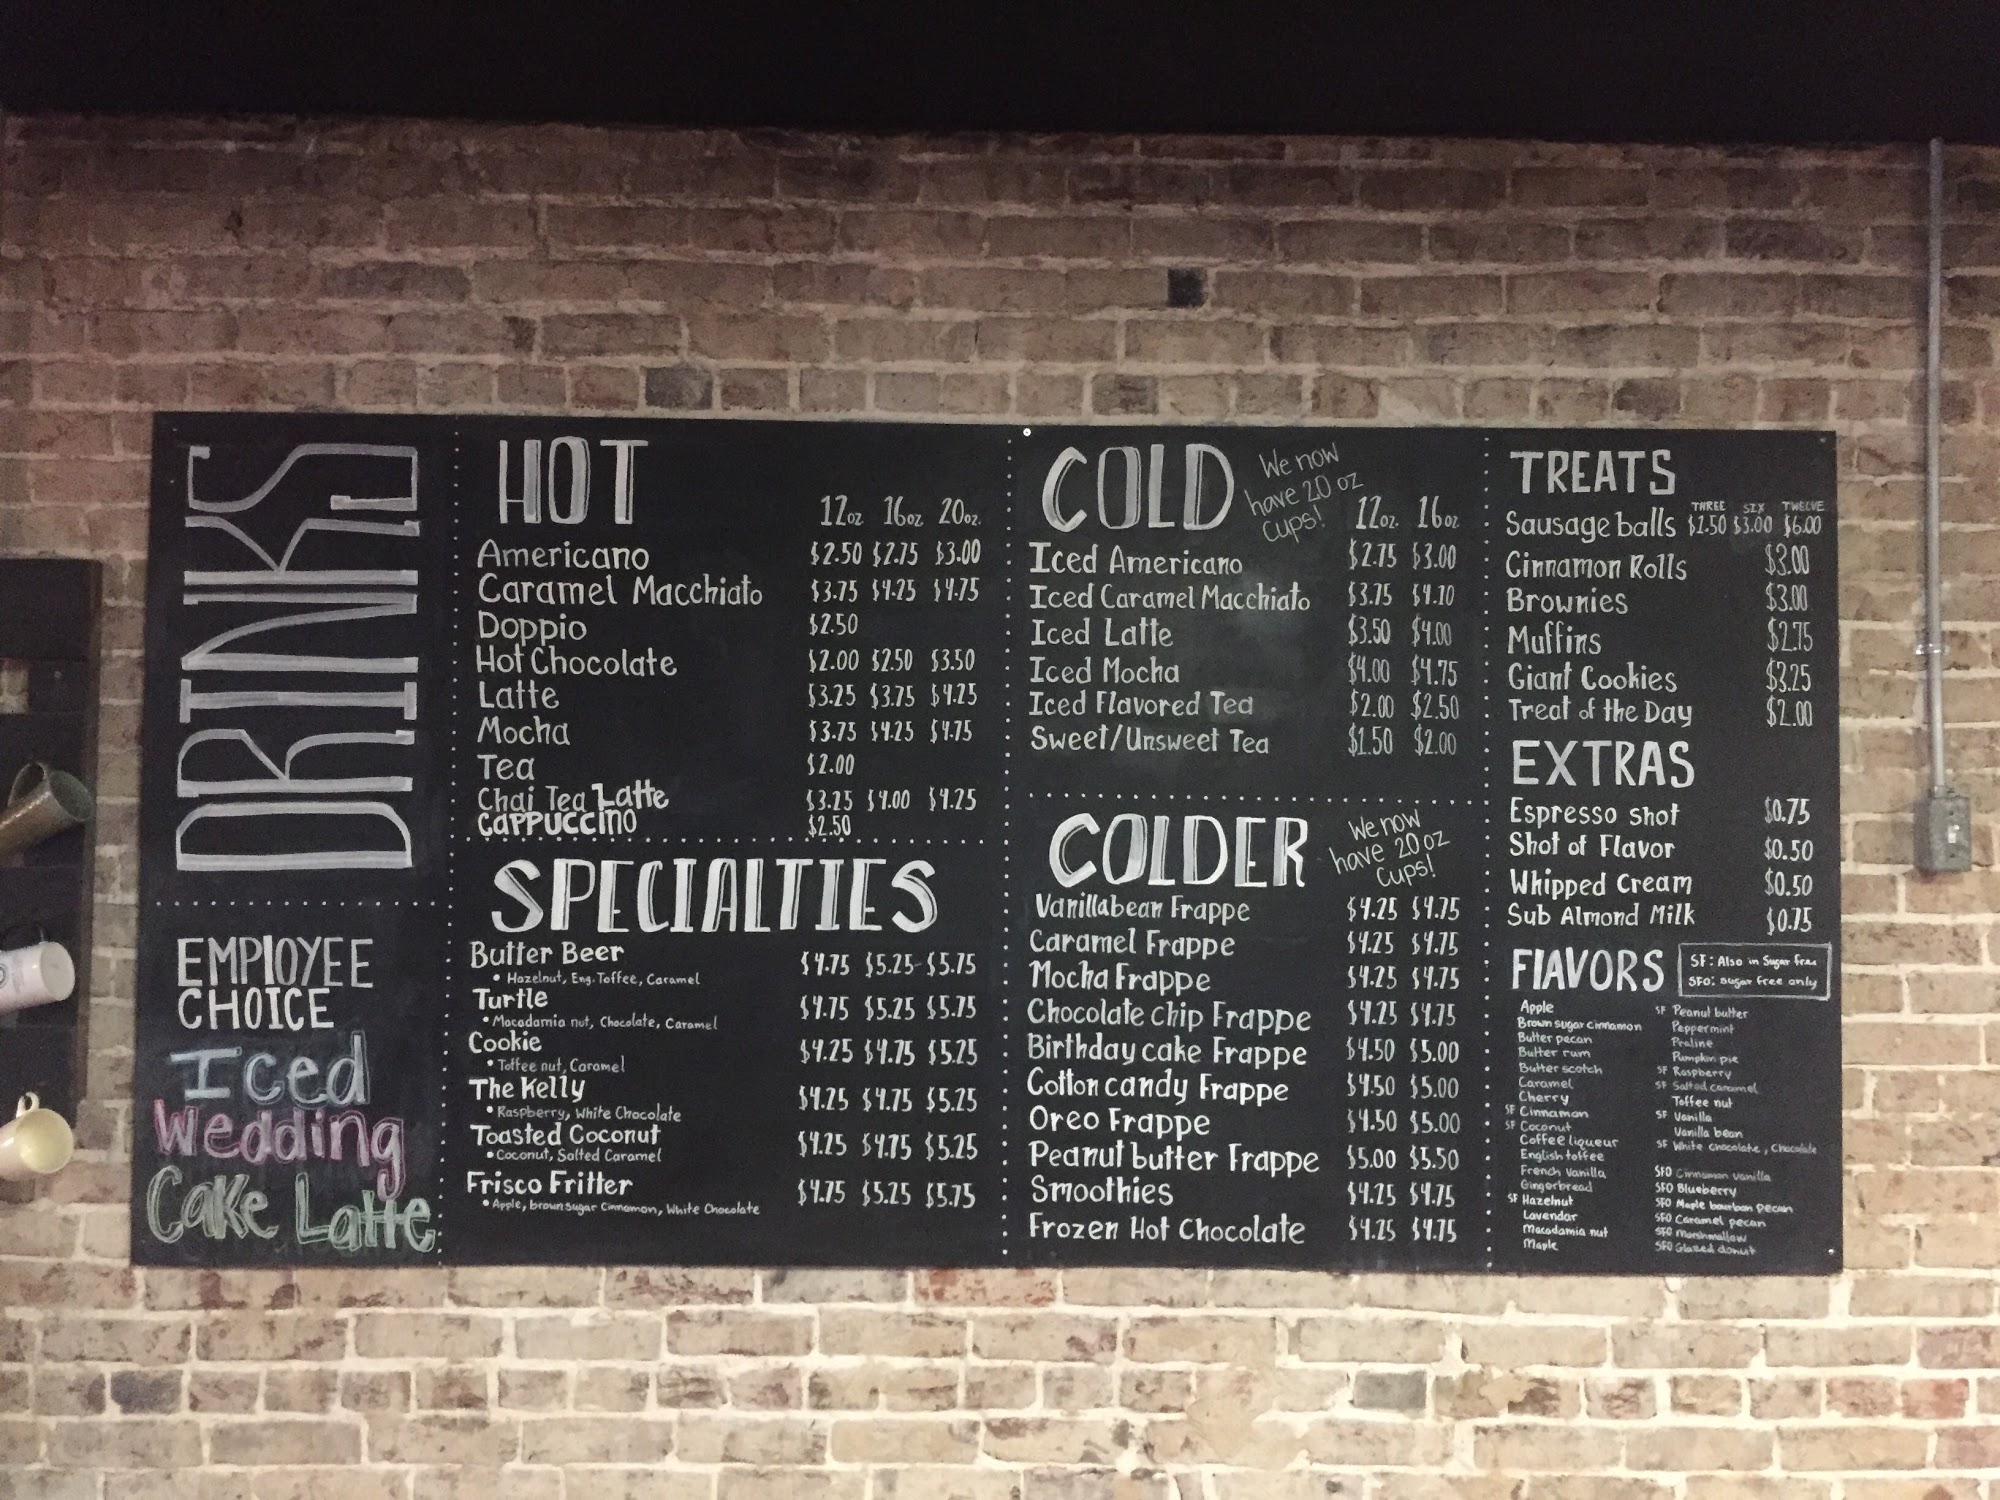 DRINKS
EMPLOYEE
CHOICE
Iced
Wedding
Cake Latte
HOT
12oz 16oz 20oz.
Americano $2.50 $2.75 $3.00
Caramel Macchiato $3.75 $4.25 $4.75
Doppio $2.50
Hot Chocolate $2.00 $2.50 $3.50
Latte $3.25 $3.75 $4.25
Mocha $3.75 $4.25 $4.75
Tea $2.00
Chai Tea Latte $3.25 $4.00 $4.25
CAPPUCCINO $2.50
SPECIALTIES
Butter Beer $4.75 $5.25 $5.75
• Hazelnut, Eng. Toffee, Caramel
Turtle $4.75 $5.25 $5.75
• Macadamia nut, Chocolate, Caramel
Cookie $4.25 $4.75 $5.25
• Toffee nut, Caramel
The Kelly $4.25 $4.75 $5.25
• Raspberry, White Chocolate
Toasted Coconut $4.25 $4.75 $5.25
• Coconut, Salted Caramel
Frisco Fritter $4.75 $5.25 $5.75
• Apple, brown sugar Cinnamon, White Chocolate
COLD
We now
have 20 oz
cups!
12oz. 16oz
Iced Americano $2.75 $3.00
Iced Caramel Macchiato $3.75 $4.10
Iced Latte $3.50 $4.00
Iced Mocha $4.00 $4.75
Iced Flavored Tea $2.00 $2.50
Sweet/Unsweet Tea $1.50 $2.00
COLDER
We now
have 20 oz
cups!
Vanillabean Frappe $4.25 $4.75
Caramel Frappe $4.25 $4.75
Mocha Frappe $4.25 $4.75
Chocolate chip Frappe $4.25 $4.75
Birthday cake Frappe $4.50 $5.00
Cotton candy Frappe $4.50 $5.00
Oreo Frappe $4.50 $5.00
Peanut butter Frappe $5.00 $5.50
Smoothies $4.25 $4.75
Frozen Hot Chocolate $4.25 $4.75
TREATS
THREE SIX TWELVE
Sausage balls $1.50 $3.00 $6.00
Cinnamon Rolls $3.00
Brownies $3.00
Muffins $2.75
Giant Cookies $3.25
Treat of the Day $2.00
EXTRAS
Espresso shot $0.75
Shot of Flavor $0.50
Whipped Cream $0.50
Sub Almond Milk $0.75
FLAVORS
SF: Also in Sugar free
SFO: sugar free only
Apple
Brown sugar cinnamon
Butter pecan
Butter rum
Butter scotch
Caramel
Cherry
SF Cinnamon
SF Coconut
Coffee liqueur
English toffee
French vanilla
Gingerbread
SF Hazelnut
Lavendar
Macadamia nut
Maple
SF Peanut butter
Peppermint
Praline
Pumpkin pie
SF Raspberry
SF Salted caramel
Toffee nut
SF Vanilla
Vanilla bean
SF White chocolate, Chocolate
SFO Cinnamon vanilla
SFO Blueberry
SFO Maple bourbon pecan
SFO Caramel pecan
SFO Marshmallow
SFO Glazed donut